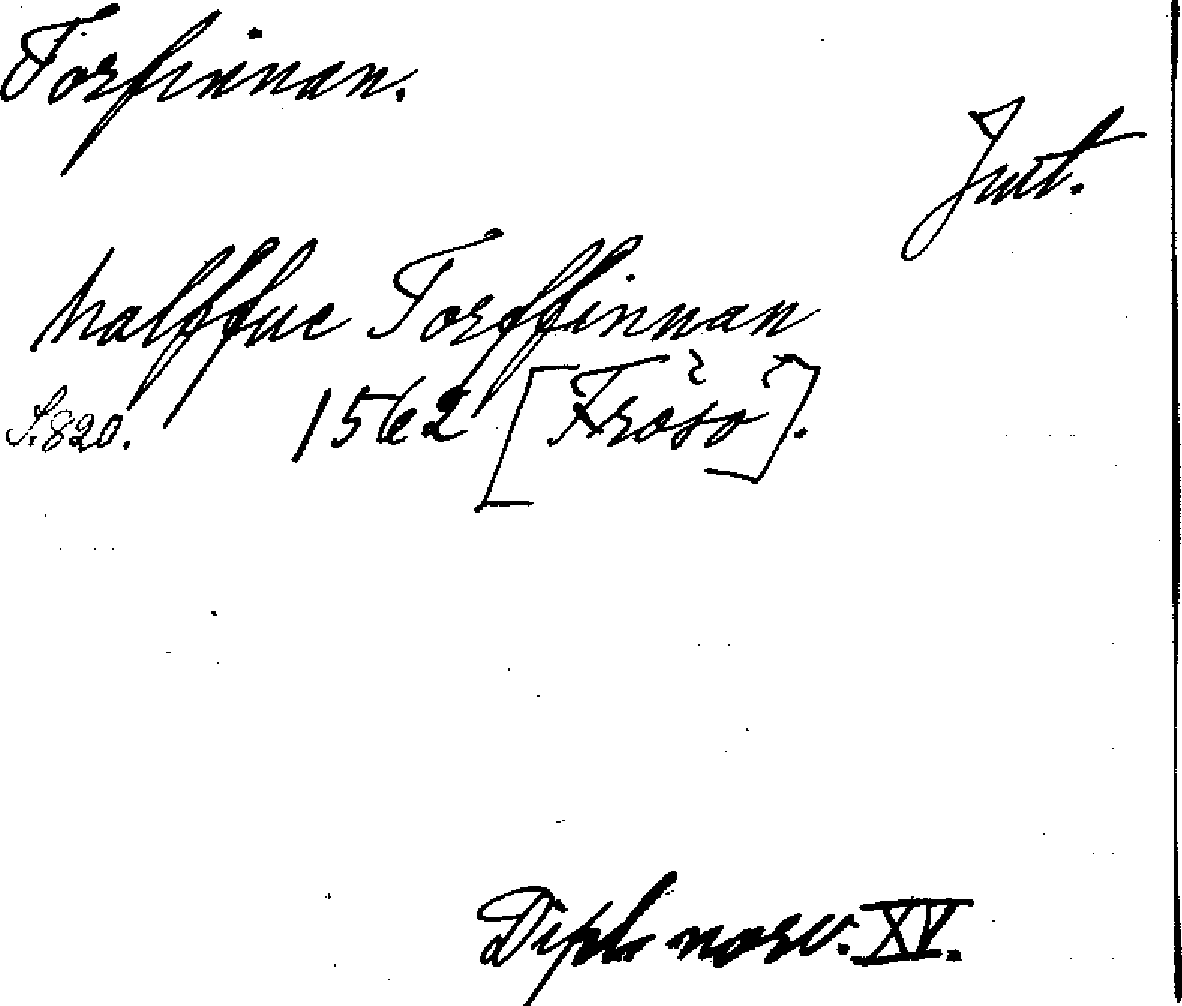 Torfinnan.
Jmt.
halffue Torffinnan
S. 820. 1562 [Frösö].
Dipl. norv. XV.